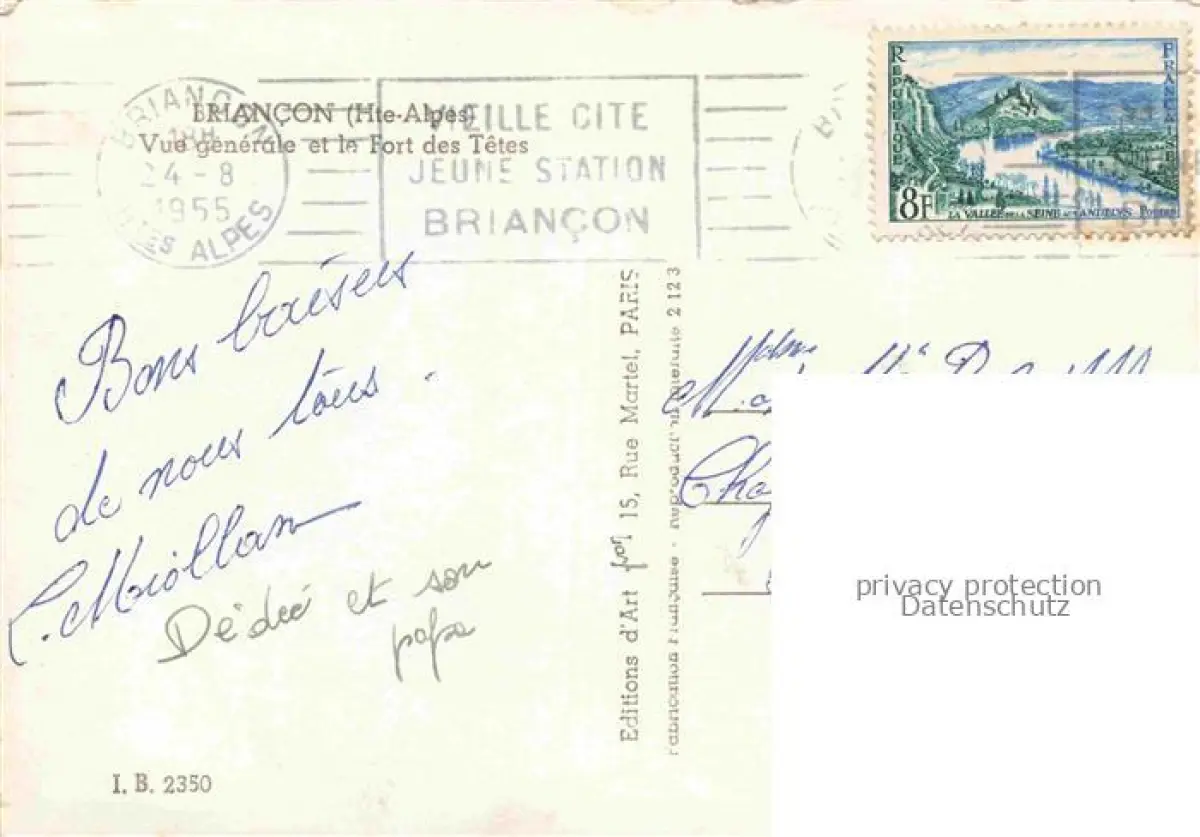 BRIANÇON (Hte-Alpes)
Vue générale et le Fort des Têtes
BRIANÇON
18H
24-8
1955
HTES ALPES
VIEILLE CITE
JEUNE STATION
BRIANÇON
REPUBLIQUE
FRANÇAISE
8F
LA VALLÉE DE LA SEINE AUX ANDELYS POSTES
Bons baisers
de nous tous.
Dédée et son
papa
I. B. 2350
Editions d'Art 15, Rue Martel, PARIS
Fabrication Française - Reproduction interdite 2123
privacy protection
Datenschutz